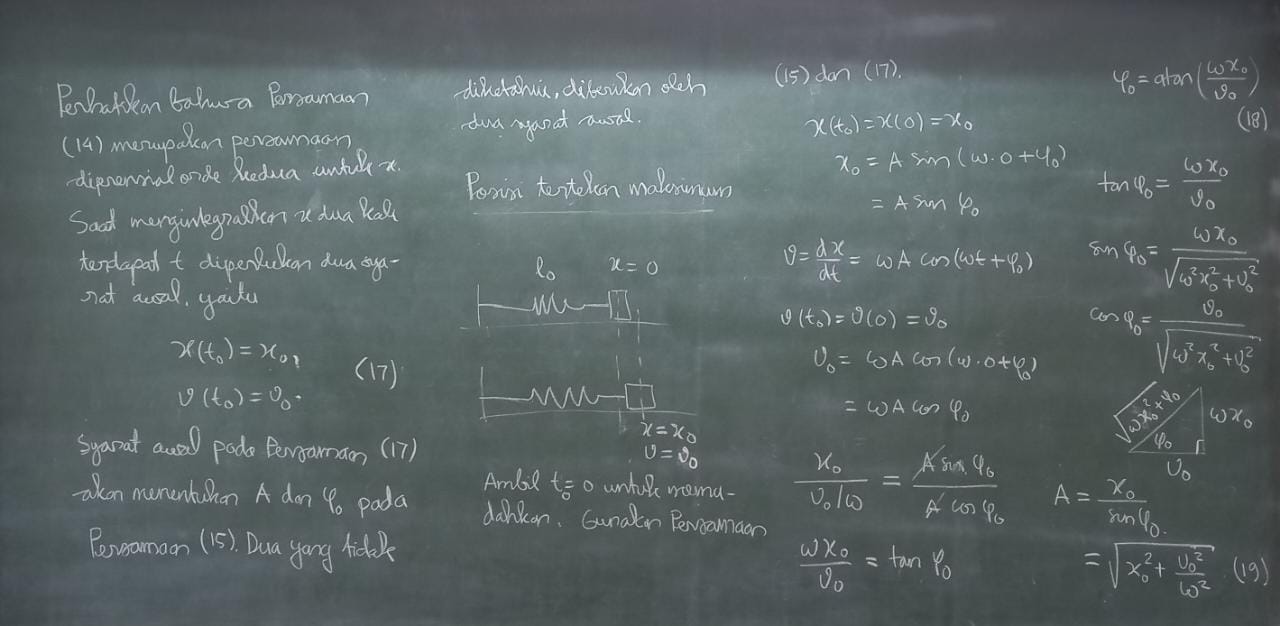 Perhatikan bahwa Persamaan
(14) merupakan persamaan
diprensial orde kedua untuk x.
Saat mengintegralkan x dua kali
terdapat t diperlukan dua sya-
rat awal, yaitu
x(t₀) = x₀,
v(t₀) = v₀.
(17)
Syarat awal pada Persamaan (17)
akan menentukan A dan φ₀ pada
Persamaan (15). Dua yang tidak
diketahui, diberikan oleh
dua syarat awal.
Posisi tertekan maksimum
l₀ x = 0
x = x₀
v = v₀
Ambil t₀ = 0 untuk memu-
dahkan. Gunakan Persamaan
(15) dan (17).
x(t₀) = x(0) = x₀
x₀ = A sin (ω·0 + φ₀)
= A sin φ₀
v = dx/dt = ωA cos(ωt + φ₀)
v(t₀) = v(0) = v₀
v₀ = ωA cos(ω·0 + φ₀)
= ωA cos φ₀
x₀/(v₀/ω) = A sin φ₀/A cos φ₀
ωx₀/v₀ = tan φ₀
φ₀ = atan(ωx₀/v₀)
(18)
tan φ₀ = ωx₀/v₀
sin φ₀ = ωx₀/√(ω²x₀² + v₀²)
cos φ₀ = v₀/√(ω²x₀² + v₀²)
√(ωx₀² + v₀) ωx₀
φ₀
v₀
A = x₀/sin φ₀.
= √(x₀² + v₀²/ω²) (19)